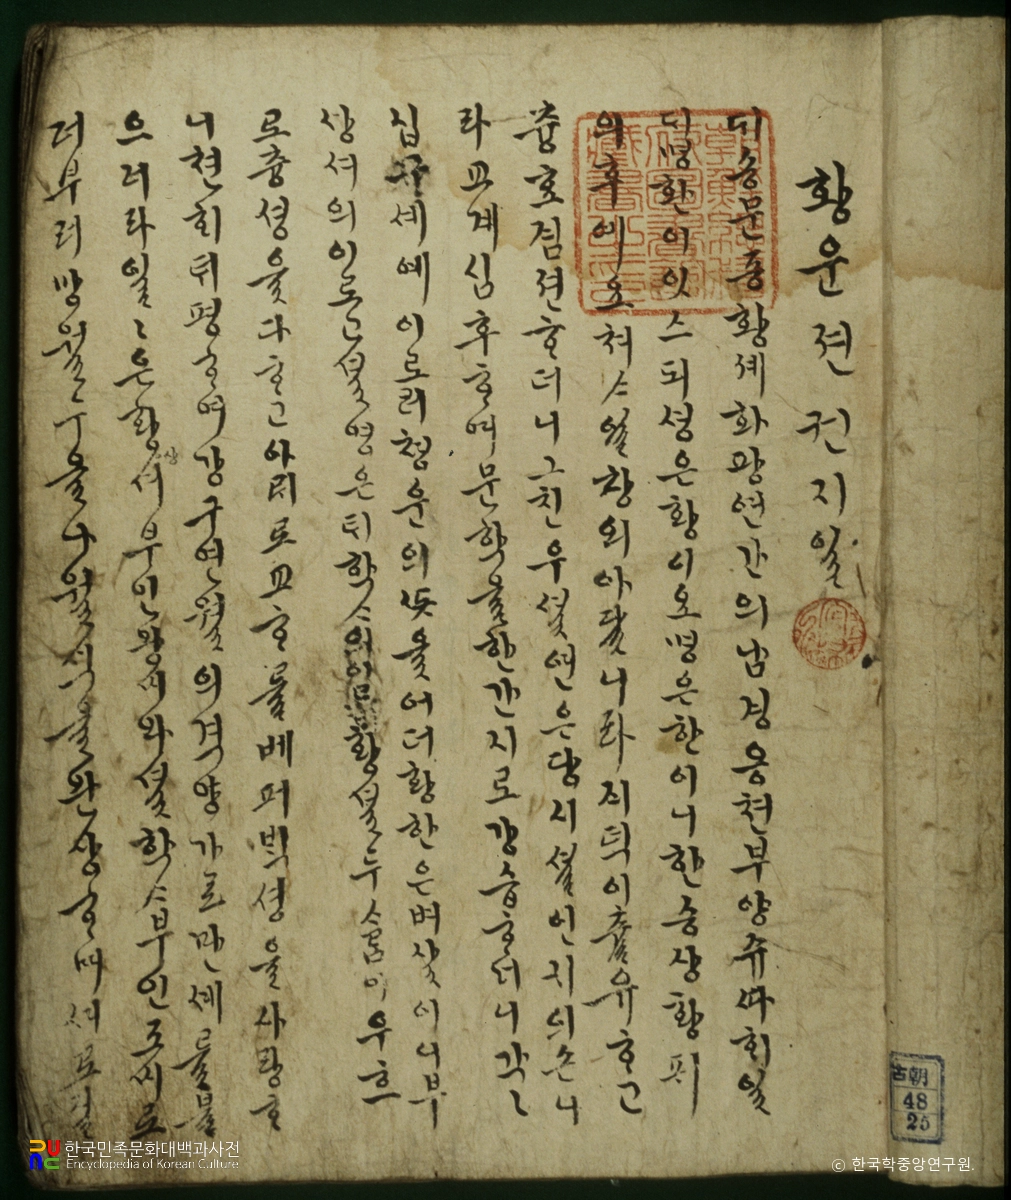 황운젼 권지일
ᄃᆡ송문종황뎨화광연간의남경응쳔부양쥬ᄯᅡ희일
ᄃᆡ명환이잇스되셩은황이오명은한이니한승상황
의후예오쳐ᄉᆞ일창의아ᄃᆞᆯ니라ᄌᆡ덕이츌유ᄒᆞ고
츙효겸젼ᄒᆞ더니그친우셜연은당시셜인지의손니
라교계심후ᄒᆞ여문학을한간지로강습ᄒᆞ더니각각
십구셰예이르러쳥운의ᄯᅳᆺ을어더황한은벼살이니부
상셔의이르고셜영은ᄐᆡ학ᄉᆞ의이르황셜두ᄉᆞᄅᆞᆷ이우흐
로츙셩을다ᄒᆞ고아ᄅᆡ로교ᄒᆞ를베퍼ᄇᆡᆨ셩을사랑ᄒᆞ
니쳔희ᄐᆡ평ᄒᆞ여강구연월의격양가로만셰를불
으러라일일은황상셔부인왕씨와셜학ᄉᆞ부인조씨로
더부러망월누올나월ᄉᆡᆨ을완상ᄒᆞ며셔로
古朝
48
25
한국민족문화대백과사전
Encyclopedia of Korean Culture
© 한국학중앙연구원.